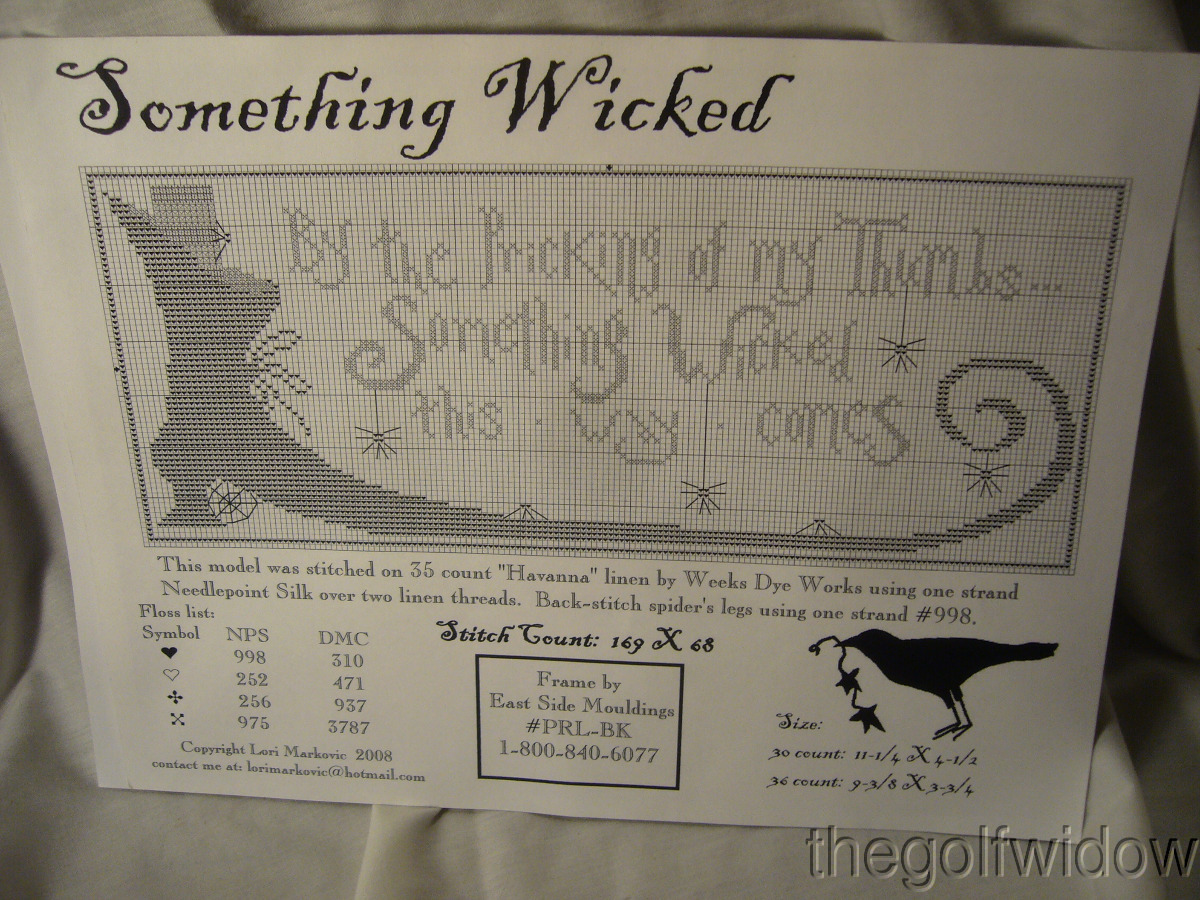 Something Wicked
By the Pricking of my Thumbs...
Something Wicked
this way comes
This model was stitched on 35 count "Havanna" linen by Weeks Dye Works using one strand
Needlepoint Silk over two linen threads. Back-stitch spider's legs using one strand #998.
Floss list:
Symbol NPS DMC
998 310
252 471
256 937
975 3787
Copyright Lori Markovic 2008
contact me at: lorimarkovic@hotmail.com
Stitch Count: 169 X 68
Frame by
East Side Mouldings
#PRL-BK
1-800-840-6077
Size:
30 count: 11-1/4 X 4-1/2
36 count: 9-3/8 X 3-3/4
thegolfwidow